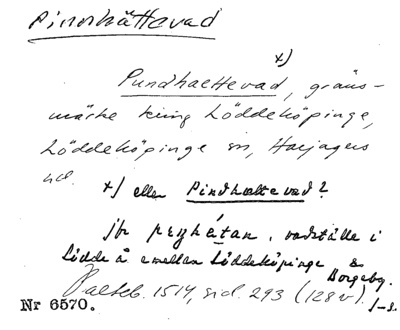 Pundhættevad
x)
Pundhaettevad, gräns-
märke kring Löddeköpinge,
Löddeköpinge sn, Harjagers
hd.
x) eller Pindhættevad?
jfr , vadställe i
Lödde å emellan Löddeköpinge &
Borgeby.
Palteb. 1514, sid. 293 (128v).
Nr 6570.